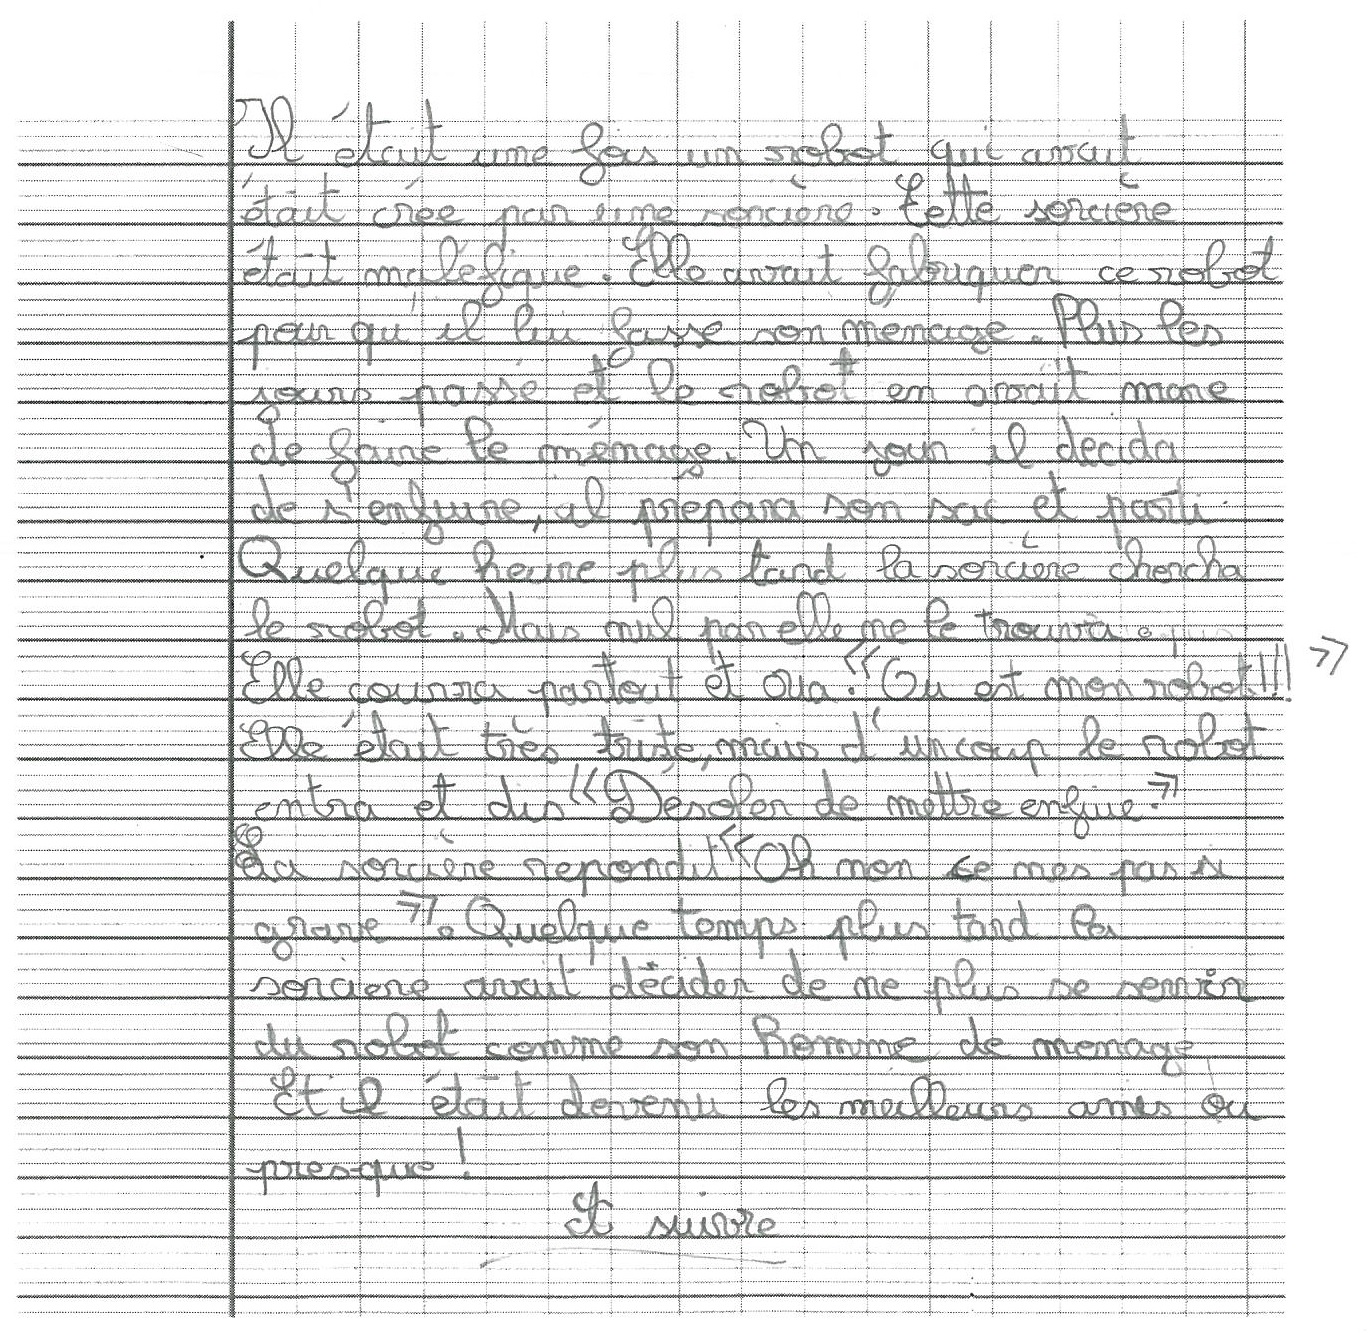 Il était une fois un robot qui avait
était crée par une sorcière. Cette sorcière
était maléfique. Elle avait fabriquer ce robot
pour qu'il lui fasse son ménage. Plus les
jours passé et le robot en avait mare
de faire le ménage. Un jour il décida
de s'enfuire, il prépara son sac et parti.
Quelque heure plus tard la sorcière chercha
le robot. Mais nul par elle ne le trouva.
Elle courra partout et cria : « Ou est mon robot!!! »
Elle était très triste, mais d'un coup le robot
entra et dis « Désoler de mettre enfiue. »
La sorcière repondit « Oh mon ce mes pas si
grave ». Quelque temps plus tard la
sorciere avait décider de ne plus se servir
du robot comme son homme de menage
Et il était devenu les meilleurs amis ou
presque !
A suivre